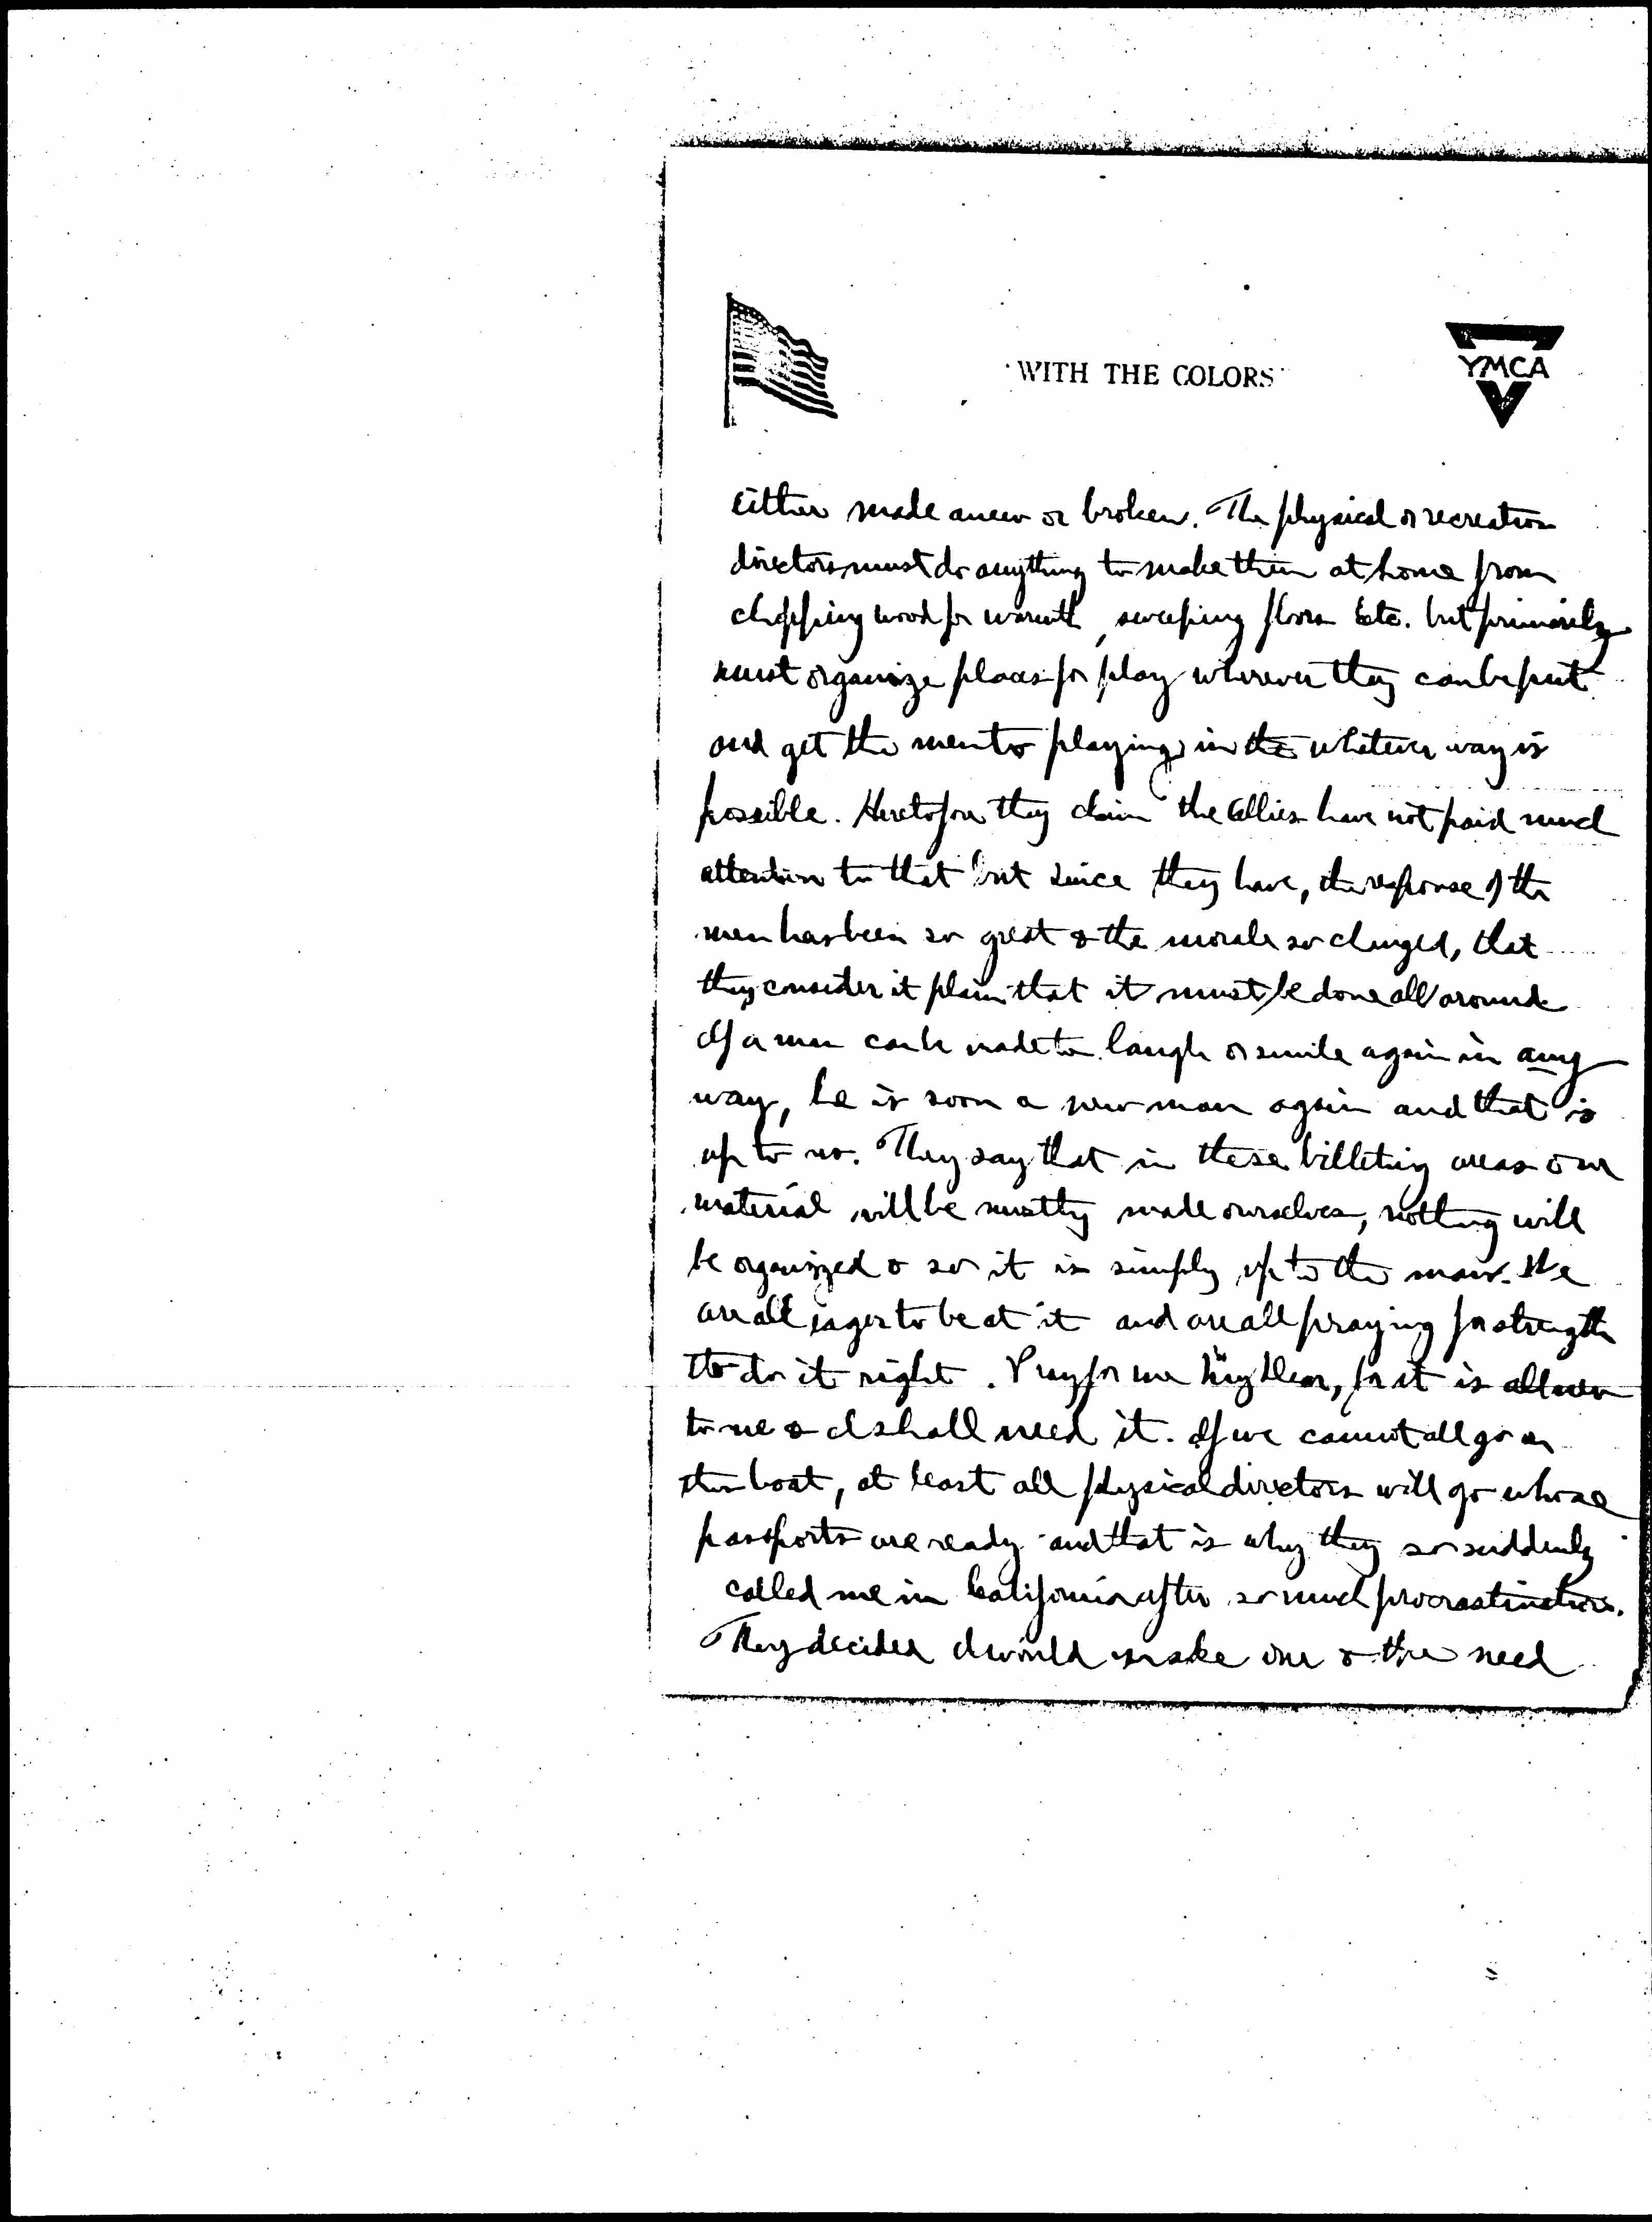 "WITH THE COLORS"
YMCA
either made anew or broken. The physical or recreation
directors must do anything to make them at home from
chopping wood for warmth, sweeping floors etc. but primarily
must organize places for play wherever they can be put
and get the men to playing in the whatever way is
possible. Heretofore they claim the Allies have not paid much
attention to that but since they have, the response of the
men has been so great & the morale so changed, that
they consider it plain that it must be done all around
If a man can be made to laugh or smile again in any
way, he is soon a new man again and that is
up to us. They say that in these billeting areas our
material will be mostly made ourselves, nothing will
be organized & so it is simply up to the man. We
are all eager to be at it and are all praying for strength
to do it right. Pray for me dear, for it is all new
to me & I shall need it. If we cannot all go on
this boat, at least all physical directors will go whose
passports are ready and that is why they so suddenly
called me in California after so much procrastination.
They decided I would make one & the need